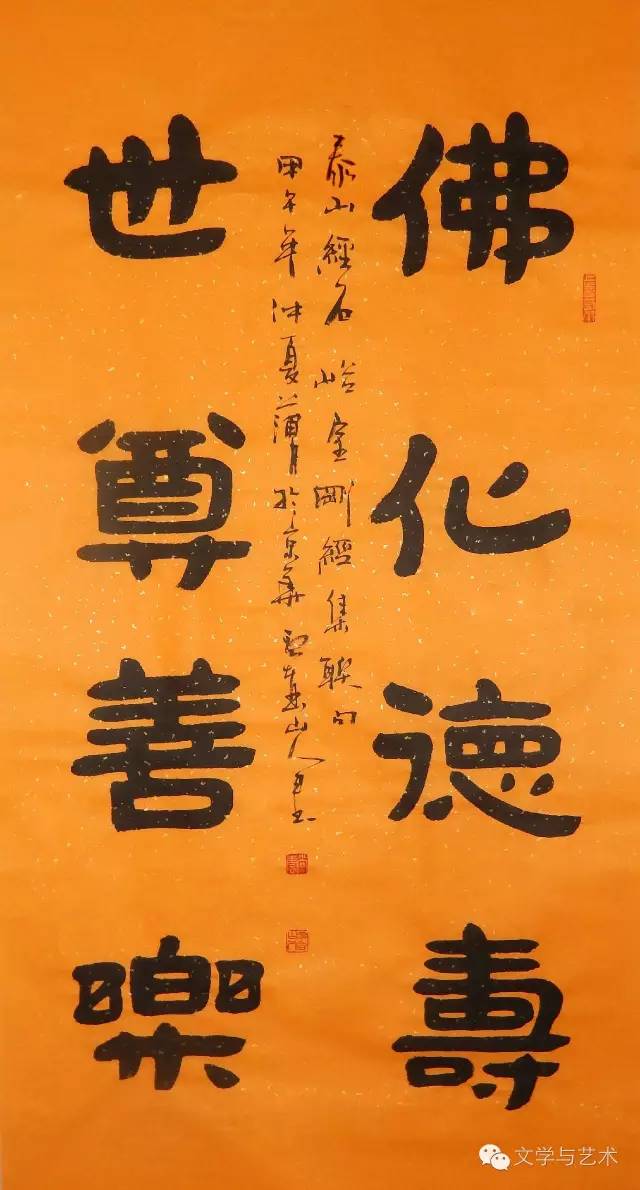 佛化德壽
泰山經石峪金剛經集聯句
甲午年仲夏蒲月於京華山人書
世尊善樂
文学与艺术